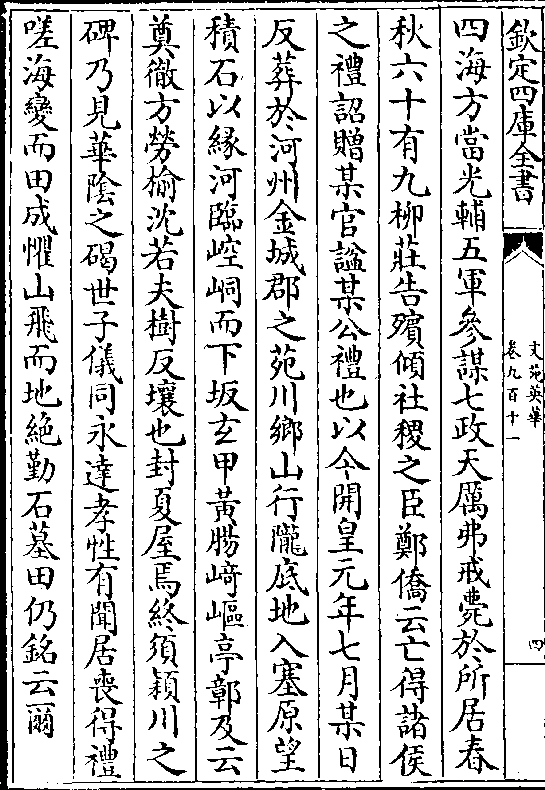 欽定四庫全書
文苑英華
卷九百十一
四
四海方當光輔五軍參謀七政天厲弗戒薨於所居春
秋六十有九柳莊告殯傾社稷之臣鄭僑云亡得諸侯
之禮詔贈某官諡某公禮也以今開皇元年七月某日
反葬於河州金城郡之苑川鄉山行隴底地入塞原望
積石以緣河臨崆峒而下坂玄甲黃腸﨑嶇亭鄣及云
奠徹方勞榆沈若夫樹反壤也封夏屋焉終須潁川之
碑乃見華隂之碣世子儀同永達孝性有聞居喪得禮
嗟海變而田成懼山飛而地絶勤石墓田仍銘云爾